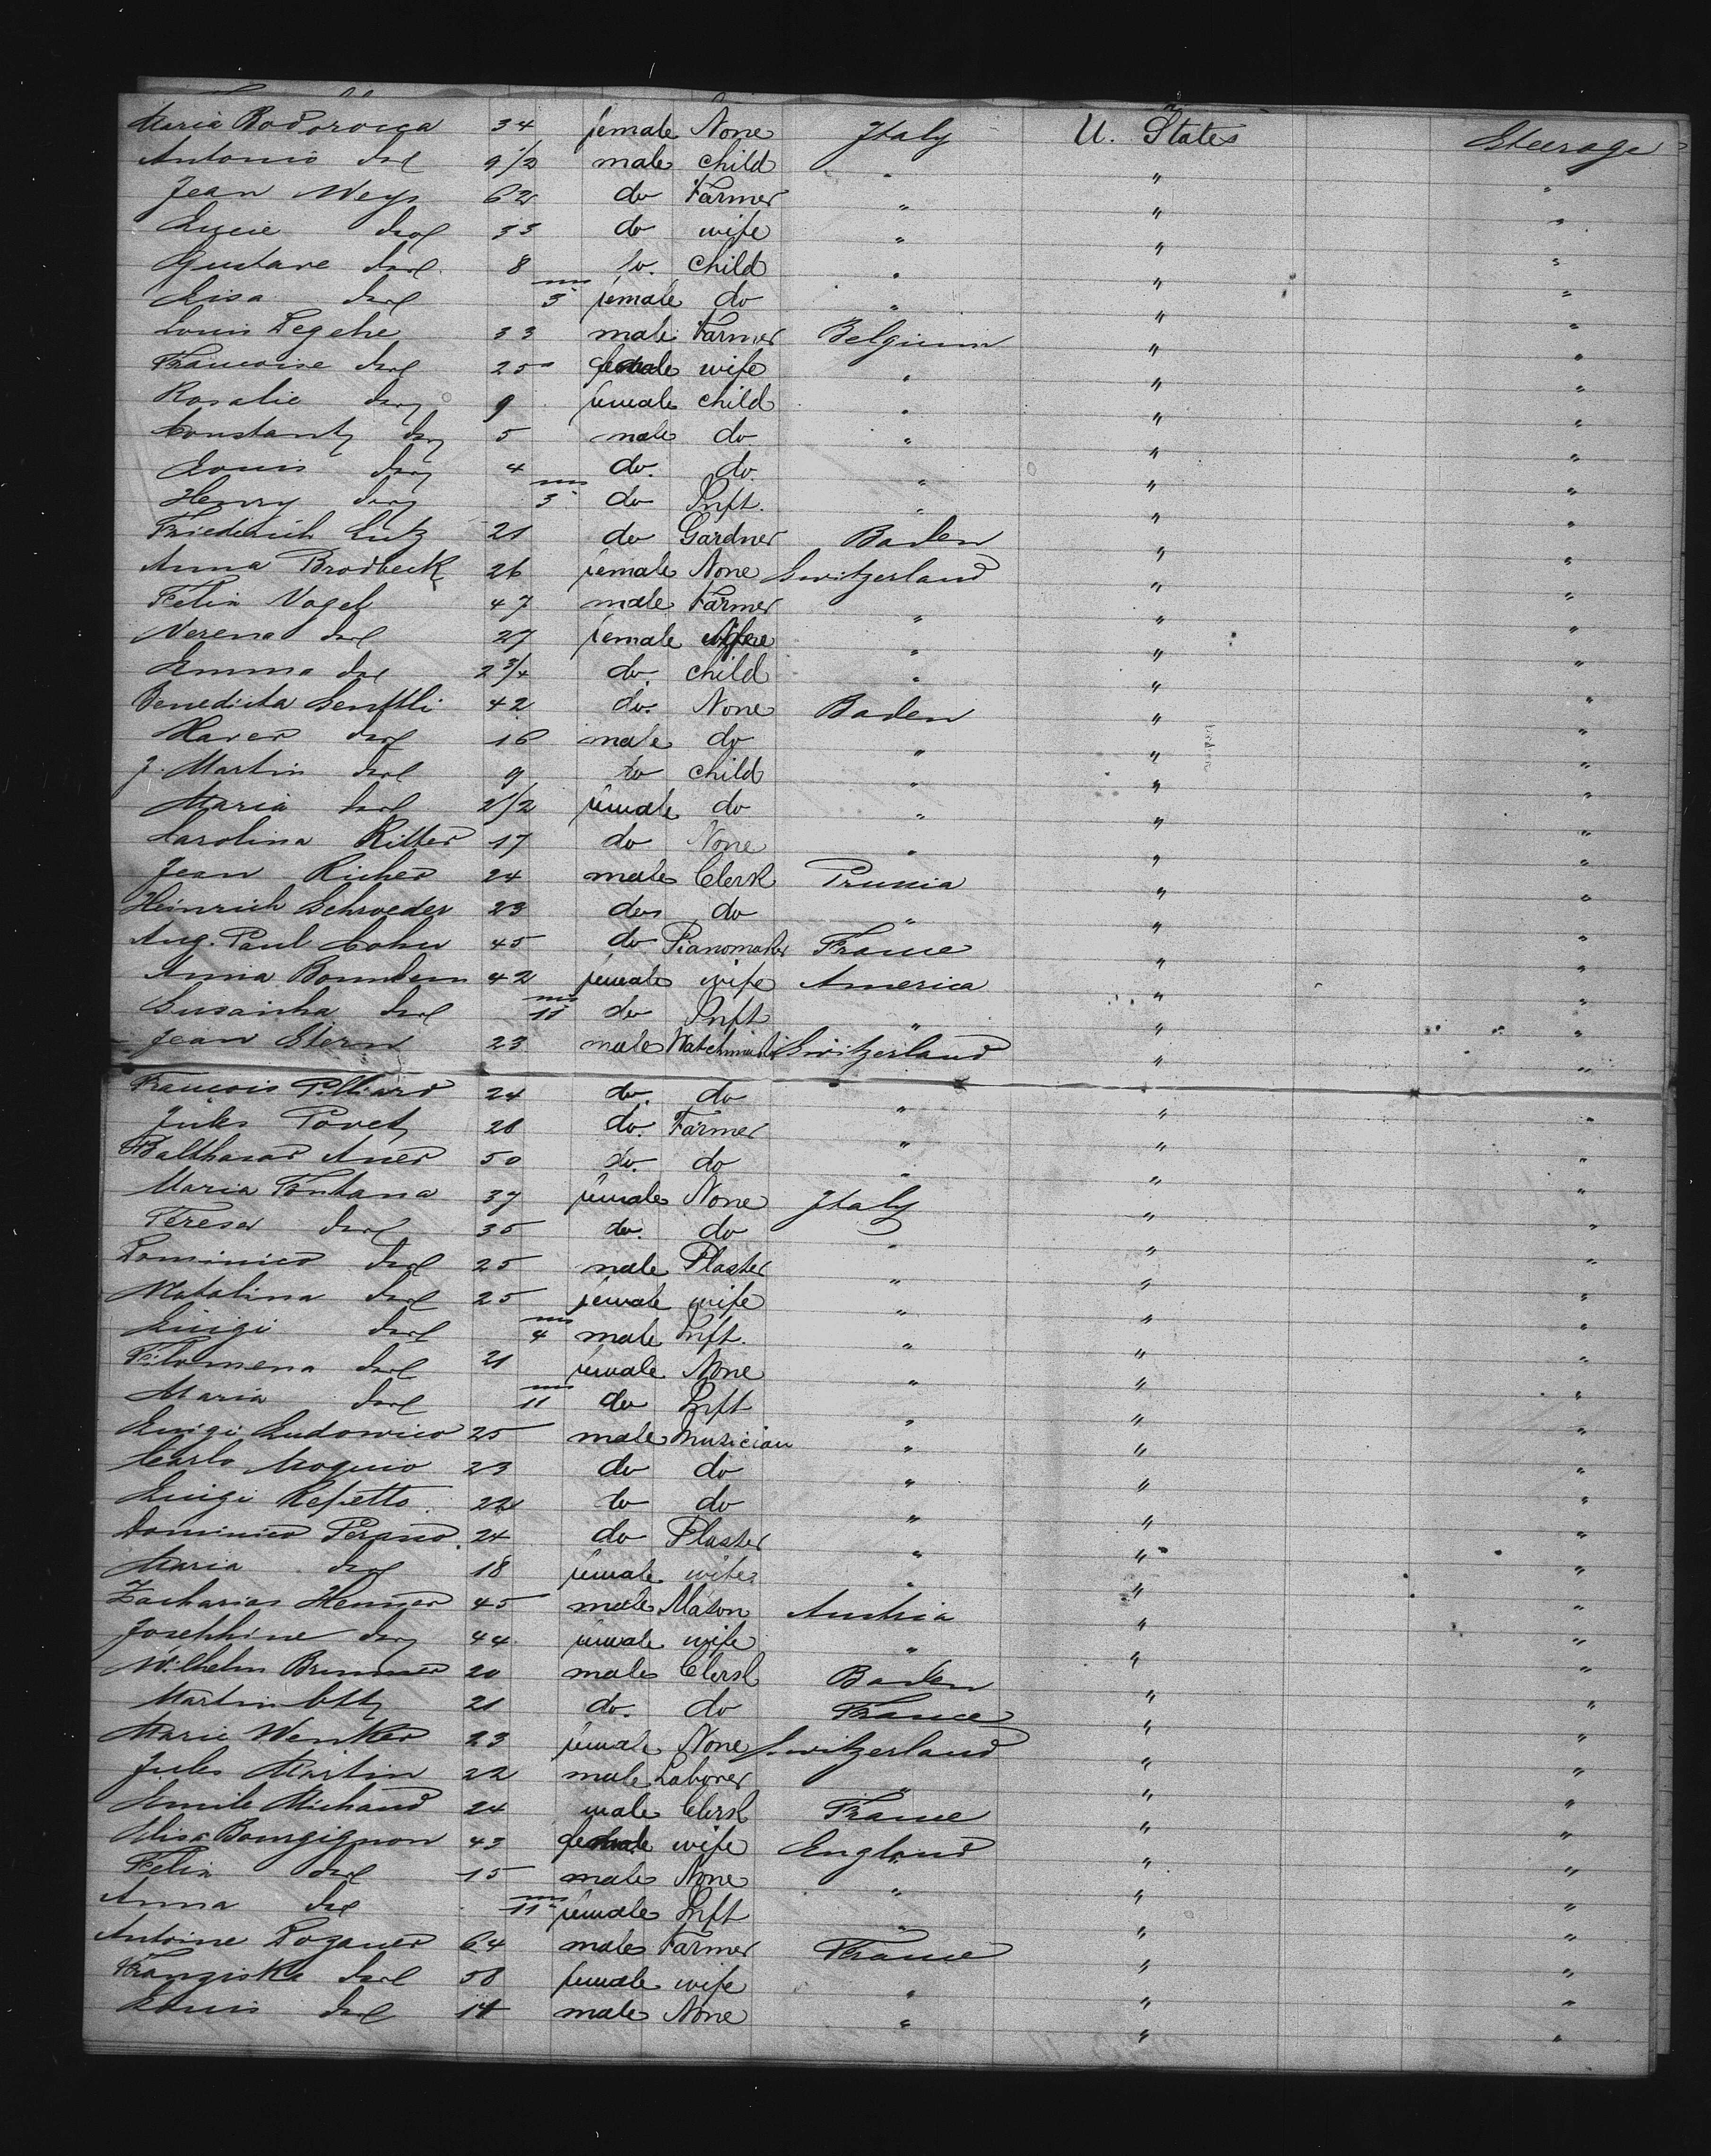 Maria Bodorocca 34 female None Italy U. States Steerage
Antonio do 9 1/2 male child " " "
Jean Weys 62 do Farmer " " "
Lucie do 33 do wife " " "
Gustave do 8 do. child " " "
Lisa do 3 ms female do " " "
Louis Legehe 33 male Farmer Belgium " "
Francoise do 25 female wife " " "
Rosalie do 9 female child " " "
Constant do 5 male do " " "
Louis do 4 do. do. " " "
Henry do 3 ms do Inft. " " "
Friederich Lutz 21 do Gardner Baden " "
Anna Brodbeck 26 female None Switzerland " "
Felix Vogel 47 male Farmer " " "
Verena do 27 female wife " " "
Emma do 2 3/4 do. child " " "
Benedicta Senftli 42 do. None Baden " "
Xaver do 16 male do " " "
J. Martin do 9 do child " " "
Maria do 2 1/2 female do " " "
Carolina Ritter 17 do None " " "
Jean Richer 24 male Clerk Prussia " "
Heinrich Schroeder 23 do do " " "
Aug. Paul Cohn 45 do Pianomaker France " "
Anna 42 female wife America " "
do 11 ms do Inft " " "
Jean Stern 23 male Watchmaker Switzerland " "
François Pilliard 24 do. do " " "
Jules Povet 28 do. Farmer " " "
Balthasar Auer 50 do. do " " "
Maria Fontana 37 female None Italy " "
Teresa do 35 do. do " " "
Dominico do 25 male Plaster " " "
Natalina do 25 female wife " " "
Luigi do 4 ms male Inft. " " "
Filomena do 21 female None " " "
Maria do 11 ms do Inft " " "
Luigi Ludovico 25 male Musician " " "
Carlo Moquio 23 do do " " "
Luigi Repetto. 22 do do " " "
Dominico Perano. 24 do Plaster " " "
Maria do 18 female wife " " "
Zacharias Henner 45 male Mason Austria " "
Josephine do 44 female wife " " "
Wilhelm Brunner 20 male Clerk Baden " "
Martin Ott 21 do. do France " "
Marie Wenker 23 female None Switzerland " "
Jules Martin 22 male Laborer " " "
Emile Michaud 24 male Clerk France " "
Elisa Bourgignon 43 female wife England " "
Felix do 15 male None " " "
Anna do 11 ms female Inft " " "
Antoine Dogauer 64 male Farmer France " "
Franziska do 58 female wife " " "
Louis do 14 male None " " "